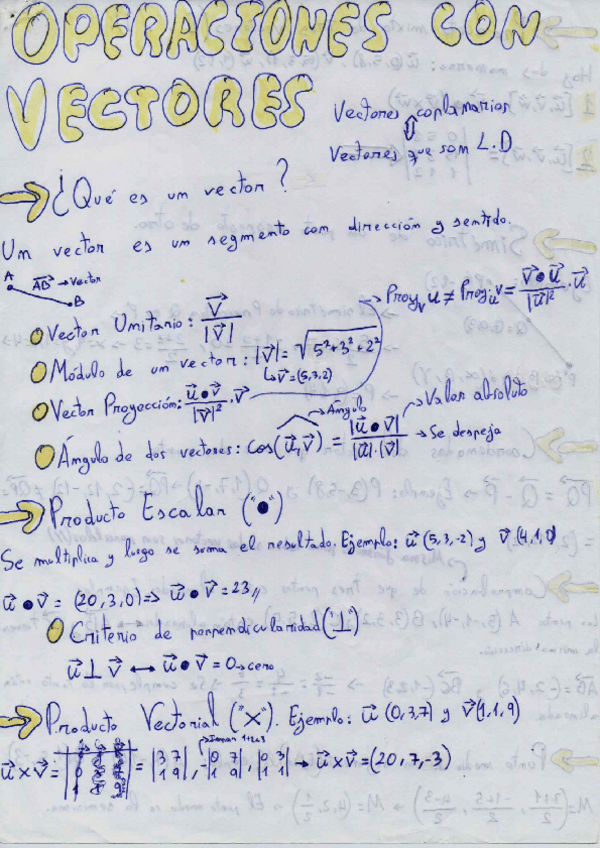 OPERACIONES CON
VECTORES
Vectores coplanarios
⇕
Vectores que son L.D
→ ¿Qué es un vector?
Un vector es un segmento con dirección y sentido.
A
AB⃗ → vector
B
→ Proy_v u ≠ Proy_u v = (v⃗ • u⃗)/|u⃗|² · u⃗
Vector Unitario: v⃗/|v⃗|
Módulo de un vector: |v⃗| = √(5²+3²+2²)
↳ v⃗ = (5,3,2)
Vector Proyección: (u⃗ • v⃗)/|v⃗|² · v⃗
→ Ángulo → Valor absoluto
Ángulo de dos vectores: cos(u⃗,v⃗) = |u⃗ • v⃗|/(|u⃗|·|v⃗|) → Se despeja
→ Producto Escalar ("•")
Se multiplica y luego se suma el resultado. Ejemplo: u⃗ (5,3,-2) y v⃗ (4,1,0)
u⃗ • v⃗ = (20,3,0) => u⃗ • v⃗ = 23,,
Criterio de perpendicularidad ("⊥")
u⃗ ⊥ v⃗ ⟷ u⃗ • v⃗ = 0 → cero
→ Producto Vectorial ("×"). Ejemplo: u⃗ (0,3,7) y v⃗ (1,1,9)
u⃗ × v⃗ = = |3 7; 1 9|, -|0 7; 1 9|, |0 3; 1 1| → u⃗ × v⃗ = (20,7,-3)